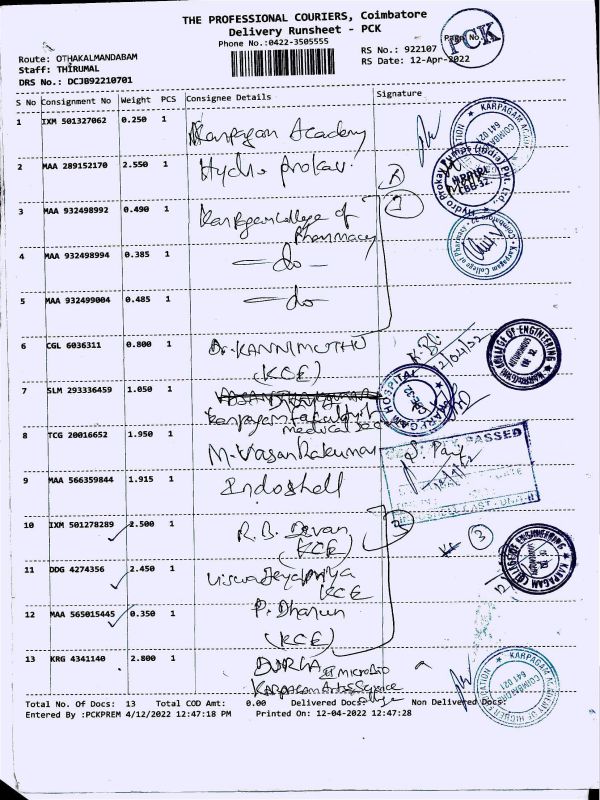 THE PROFESSIONAL COURIERS, Coimbatore
Delivery Runsheet - PCK
Phone No.:0422-3505555
Page No.
PCK
Route: OTHAKALMANDABAM
Staff: THIRUMAL
DRS No.: DCJB92210701
RS No.: 922107
RS Date: 12-Apr-2022
S No Consignment No Weight PCS Consignee Details Signature
1 IXM 501327062 0.250 1 Karpagam Academy
2 MAA 289152170 2.550 1 Hydro Prokav.
3 MAA 932498992 0.490 1 Karpagam College of
Pharmacy
4 MAA 932498994 0.385 1 —do—
5 MAA 932499004 0.485 1 —do—
6 CGL 6036311 0.800 1 Dr. KANNIMUTHU
(KCE)
12/04/22
7 SLM 293336459 1.050 1
Karpagam
medical
8 TCG 20016652 1.950 1 M. Vasan
9 MAA 566359844 1.915 1 Indoshell
10 IXM 501278289 2.500 1 R. B. Devan
(KCE)
3
11 DDG 4274356 2.450 1
KCE
12 MAA 565015445 0.350 1 P. Dharun
(KCE)
13 KRG 4341140 2.800 1 DURGA II MICROBIO
Karpagam Arts Science
College
Total No. Of Docs: 13 Total COD Amt: 0.00 Delivered Docs: Non Delivered Docs:
Entered By :PCKPREM 4/12/2022 12:47:18 PM Printed On: 12-04-2022 12:47:28
KARPAGAM ACADEMY
COIMBATORE
641 021
Hydro Prokav Pumps (India) Pvt. Ltd.
Karpagam College of Pharmacy
KARPAGAM COLLEGE OF ENGINEERING
AUTONOMOUS
HOSPITAL
PASSED
KARPAGAM COLLEGE OF ENGINEERING
KARPAGAM ACADEMY OF HIGHER EDUCATION
COIMBATORE
641 021